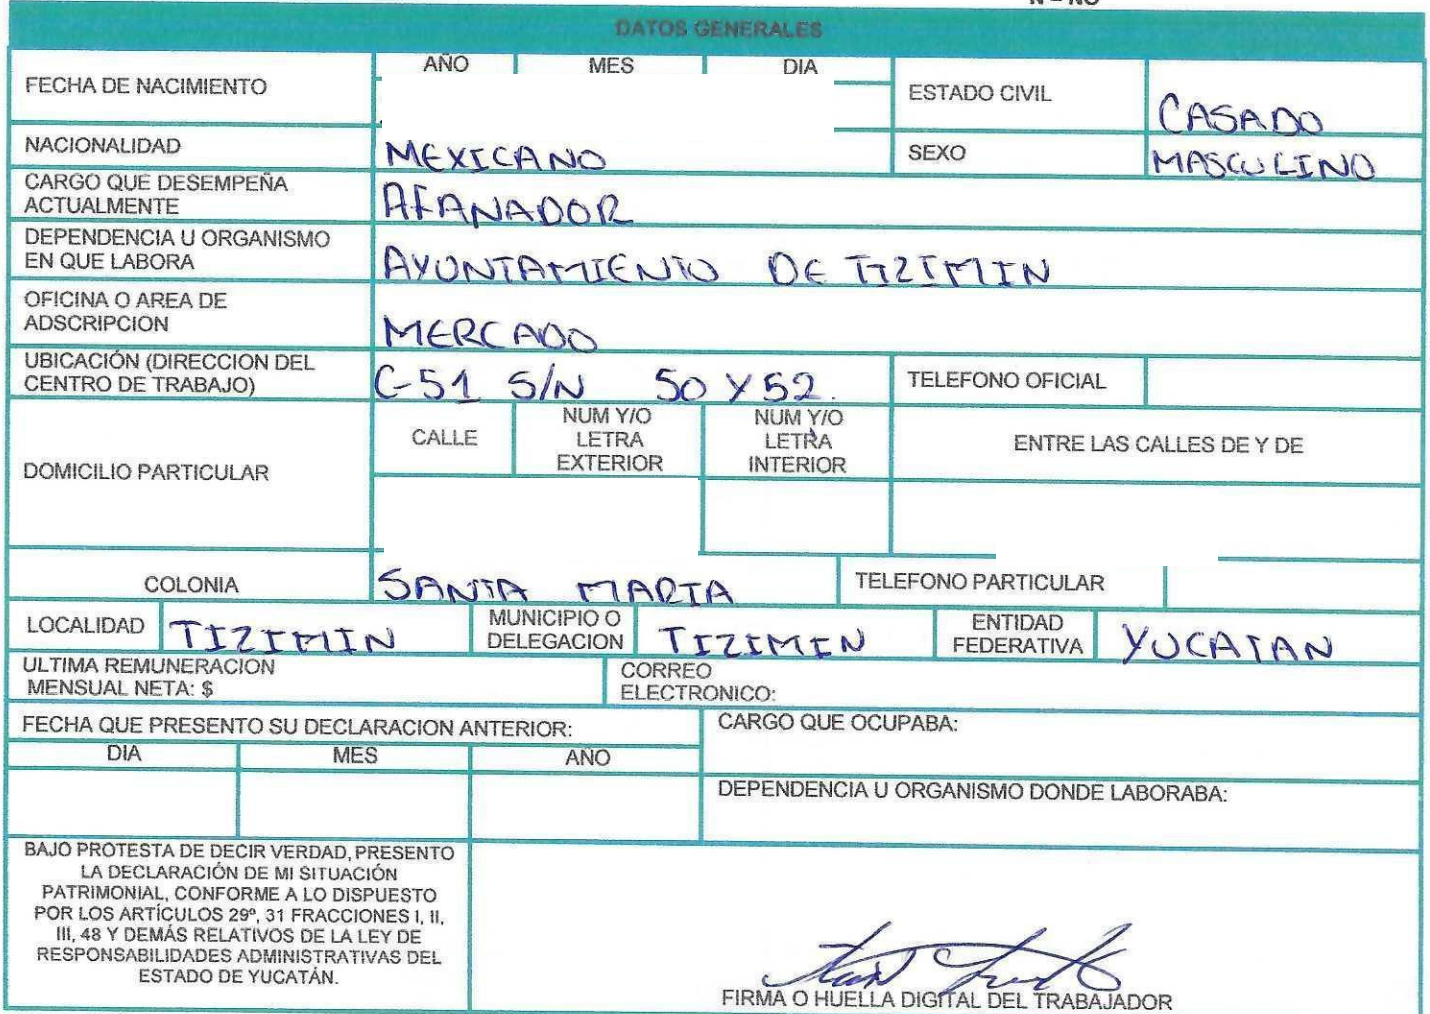 DATOS GENERALES
FECHA DE NACIMIENTO
AÑO MES DIA
ESTADO CIVIL CASADO
NACIONALIDAD MEXICANO
SEXO MASCULINO
CARGO QUE DESEMPEÑA
ACTUALMENTE
AFANADOR
DEPENDENCIA U ORGANISMO
EN QUE LABORA
AYUNTAMIENTO DE TIZIMIN
OFICINA O AREA DE
ADSCRIPCION
MERCADO
UBICACIÓN (DIRECCION DEL
CENTRO DE TRABAJO)
C-51 S/N 50 Y 52.
TELEFONO OFICIAL
DOMICILIO PARTICULAR
CALLE
NUM Y/O
LETRA
EXTERIOR
NUM Y/O
LETRA
INTERIOR
ENTRE LAS CALLES DE Y DE
COLONIA SANTA MARIA
TELEFONO PARTICULAR
LOCALIDAD TIZIMIN
MUNICIPIO O
DELEGACION
TIZIMIN
ENTIDAD
FEDERATIVA
YUCATAN
ULTIMA REMUNERACION
MENSUAL NETA: $
CORREO
ELECTRONICO:
FECHA QUE PRESENTO SU DECLARACION ANTERIOR:
DIA MES AÑO
CARGO QUE OCUPABA:
DEPENDENCIA U ORGANISMO DONDE LABORABA:
BAJO PROTESTA DE DECIR VERDAD, PRESENTO
LA DECLARACIÓN DE MI SITUACIÓN
PATRIMONIAL, CONFORME A LO DISPUESTO
POR LOS ARTÍCULOS 29º, 31 FRACCIONES I, II,
III, 48 Y DEMÁS RELATIVOS DE LA LEY DE
RESPONSABILIDADES ADMINISTRATIVAS DEL
ESTADO DE YUCATÁN.
FIRMA O HUELLA DIGITAL DEL TRABAJADOR